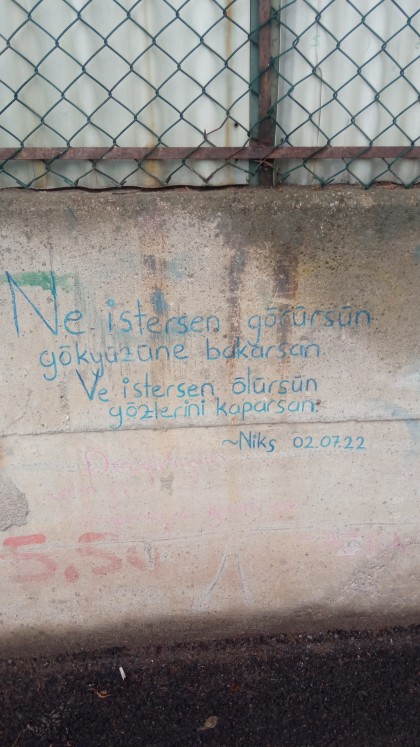 Ne istersen görürsün
gökyüzüne bakarsan.
Ve istersen ölürsün
gözlerini kaparsan.
~Nikş 02.07.22